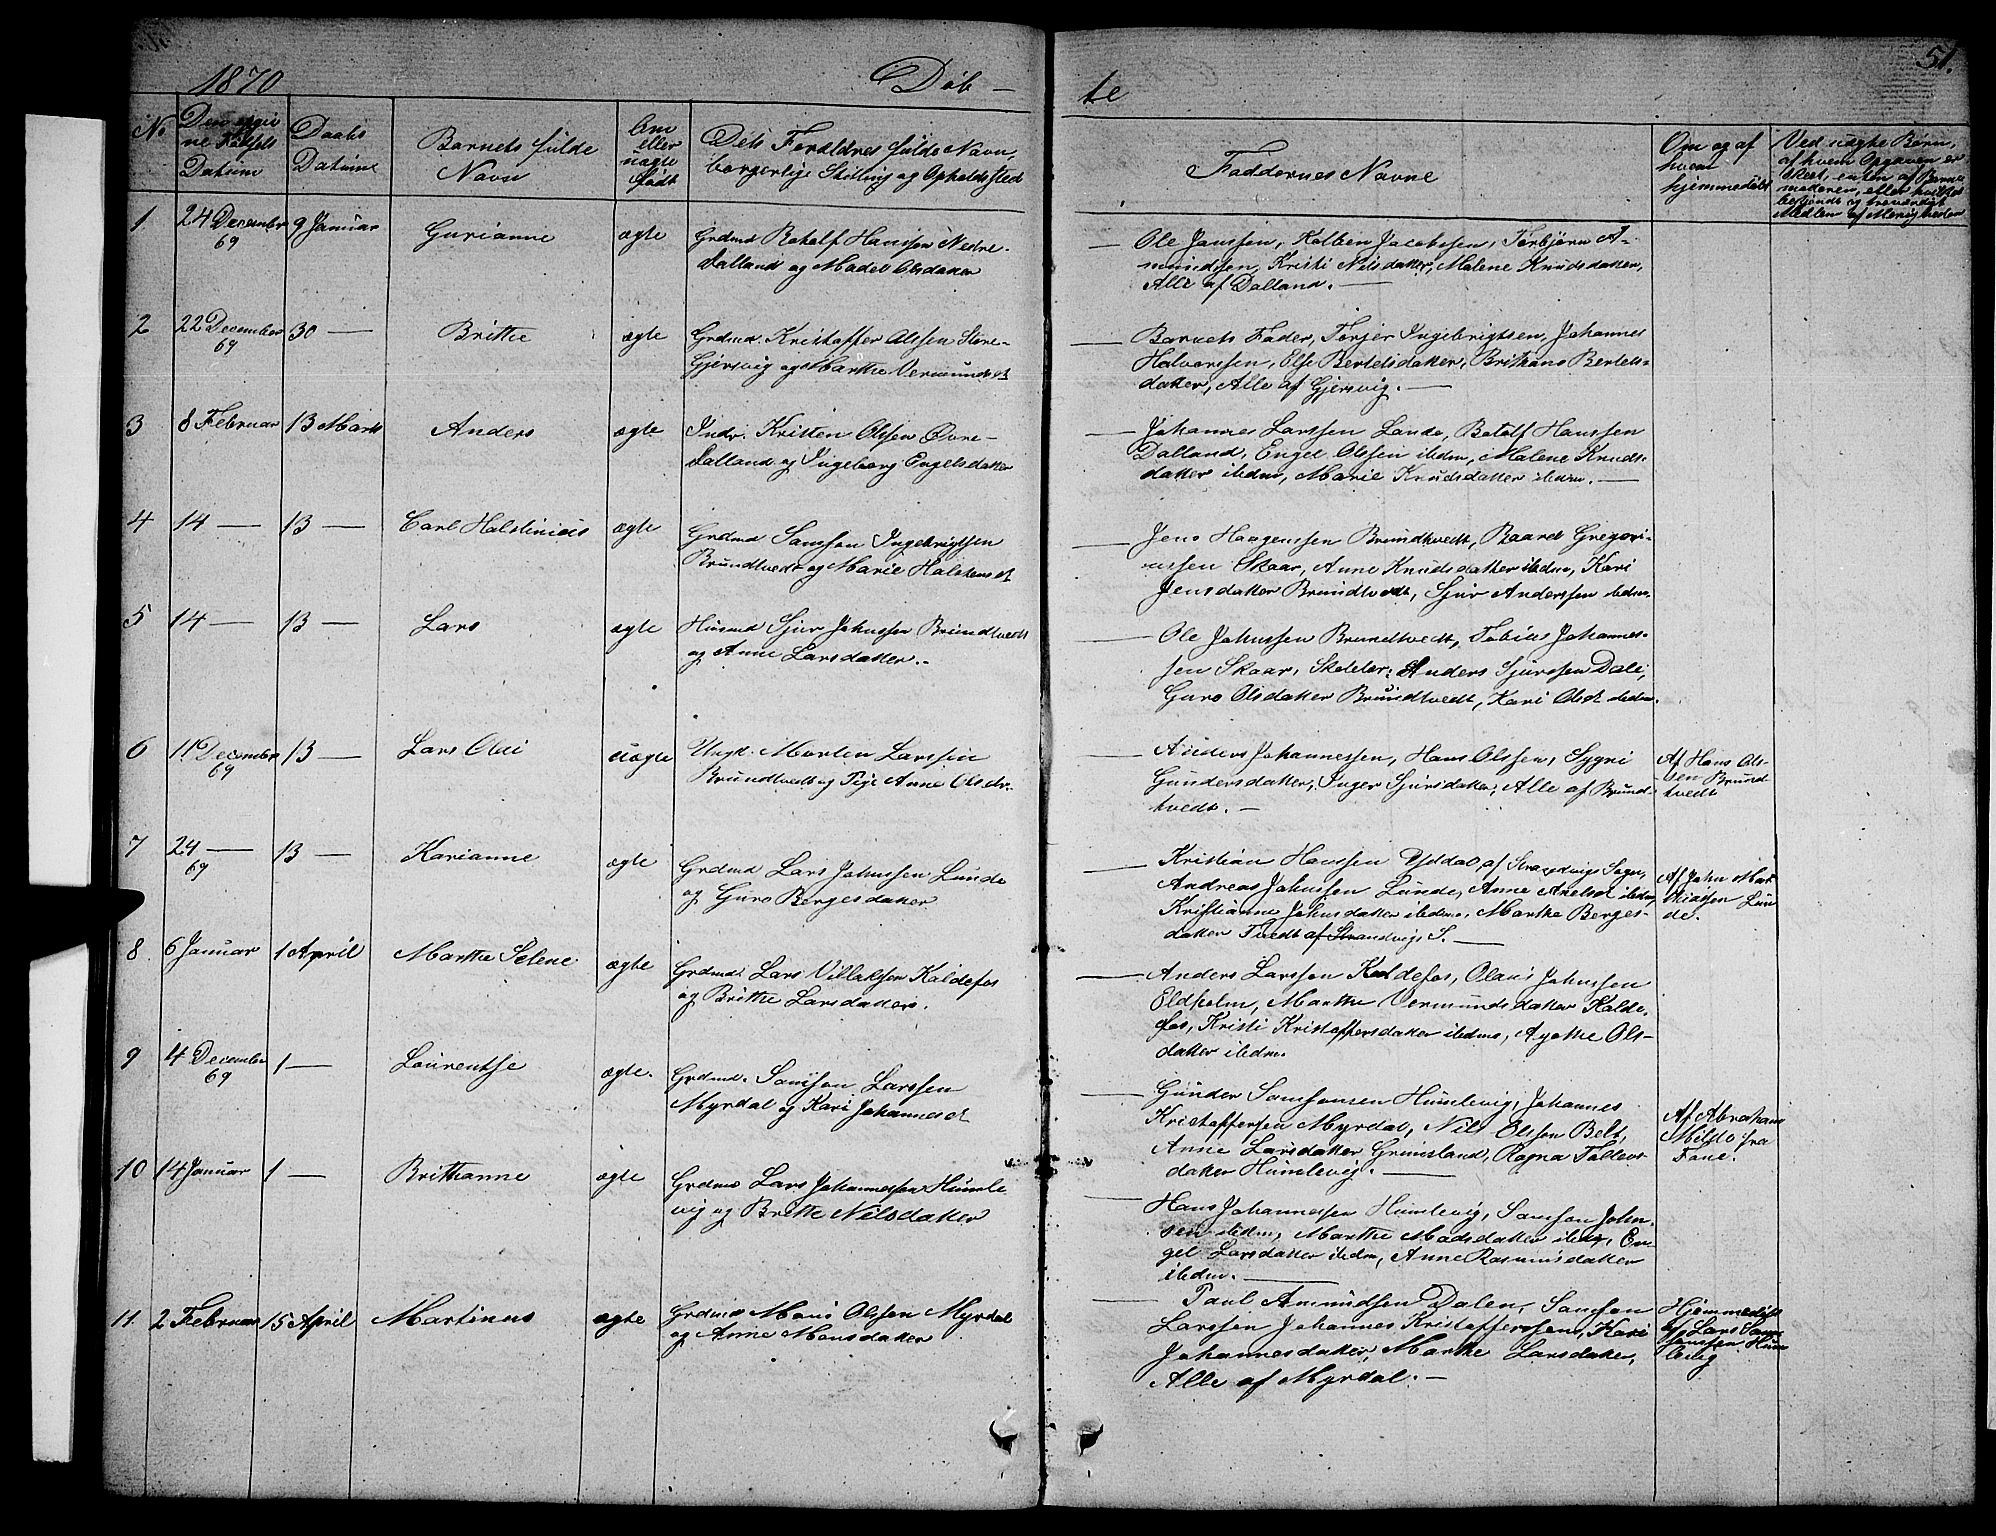 1870 Döb — te 51.
No
Den spæde Fødsels Datum
Daabs Datum
Barnets fulde Navn
Om eller uægte født
Dets Forældres fulde Navn, borgerlige Stilling og Opholdssted
Faddernes Navne
Om og af hvem hjemmedöbt
Ved uægte Børn, af hvem Opgaven er skeet, enten af Barnemoderen, eller hvilket bekjendt og troværdigt Medlem af Menigheden
1 24 December 69 9 Januar Gurianne ægte Grdmd Botolf Hanssen Nedre-
Dalland og Madel Olsdatter
— Ole Janssen, Kolben Jacobssen, Torbjörn A-
mundssen, Kristi Nilsdatter, Malene Knudsdatter,
Alle af Dalland. —
2 22 December 69 30 — Brithe ægte Grdmd. Kristoffer Olssen Store-
Gjersvig og Marthe Vermundsdt
— Barnets Fader, Torjer Ingebrigtsen, Johannes
Halvorssen, Else Bertelsdatter, Brithane Bertels-
datter, Alle af Gjersvig. —
3 8 Februar 13 Marts Anders ægte Indr. Kristen Olssen Övre-
Dalland og Ingeborg Engelsdatter
— Johannes Larssen Lande, Botolf Hanssen
Dalland, Engel Olssen ibdm, Malene Knuds-
datter ibdm, Marie Knudsdatter ibdm. —
4 14 — 13 — Carl Halstinius ægte Grdmd Samson Ingebrigtsen
Brundtvedt og Marie Halstensdt
— Jens Haagenssen Brundtvedt, Baard Gregori-
ussen Skaar, Anne Knudsdatter ibdm, Kari
Jensdatter Brundtvedt, Sjur Anderssen ibdm.
5 14 — 13 — Lars ægte Husmd Sjur Johnssen Brundtvedt
og Anne Larsdatter. -
Ole Johnssen Brundtvedt, Tobias Johannes-
sen Skaar, Skoleler; Anders Sjurssen Dale,
Guro Olsdatter Brundtvedt, Kari Olsdt ibdm.
6 11 December 69 13 — Lars Olai uægte Ungd. Morten Larssen
Brundtvedt og Pige Anne Olsdr.
— Anders Johannessen, Hans Olssen, Sygni
Gundersdatter, Inger Sjursdatter, Alle af Brund-
tvedt. —
Af Hans Ols-
sen Brund
tvedt
7 24 — 69 13 — Karianne ægte Grdmd Lars Johnssen Lunde
og Guro Bergesdatter
— Kristian Hanssen Yddal, af Strandvigs Sogn,
Andreas Johnssen Lunde, Anne Axelsdt ibdm,
Kristianne Johnsdatter ibdm, Marthe Berges-
datter Tvedt af Strandvigs S. —
Af John Mat
thiassen Lun
de.
8 6 Januar 1 April Marthe Selene ægte Grdmd. Lars Villaksen Koldefos
og Brithe Larsdatter.
— Anders Larssen Koldefos, Olaus Johnssen
Eldholm, Marthe Vermundsdatter Kolde-
fos, Kristi Kristoffersdatter ibdm, Agathe Ols-
datter ibdm.
9 4 December 69 1 — Laurentse ægte. Grdmd. Samson Larssen
Myrdal og Kari Johannesdt
— Gunder Samsonsen Humlevig, Johannes
Kristoffersen Myrdal, Nils Olssen Belt,
Anne Larsdatter Grimsland, Ragna Tollevs-
datter Humlevig. —
Af Abraham
Milde fra
Fane.
10 14 Januar 1 — Brithanne ægte Grdmd Lars Johannessen Humle
vig og Brithe Nilsdatter
— Hans Johannessen Humlevig, Samson John-
sen ibdm, Marthe Madsdatter ibdm, En-
gel Larsdatter ibdm, Anne Rasmusdatter
ibdm. —
11. 2 Februar 15 April Martinus ægte Grdmd Mons Olssen Myrdal
og Anne Monsdatter
— Paul Amundsen Dalen, Samson
Larssen Johannes Kristofferssen, Kari
Johannesdatter, Marthe Larsdatter,
Alle af Myrdal. —
Hjemmedöbt
af Lars Sam
sonssen Hum
levig